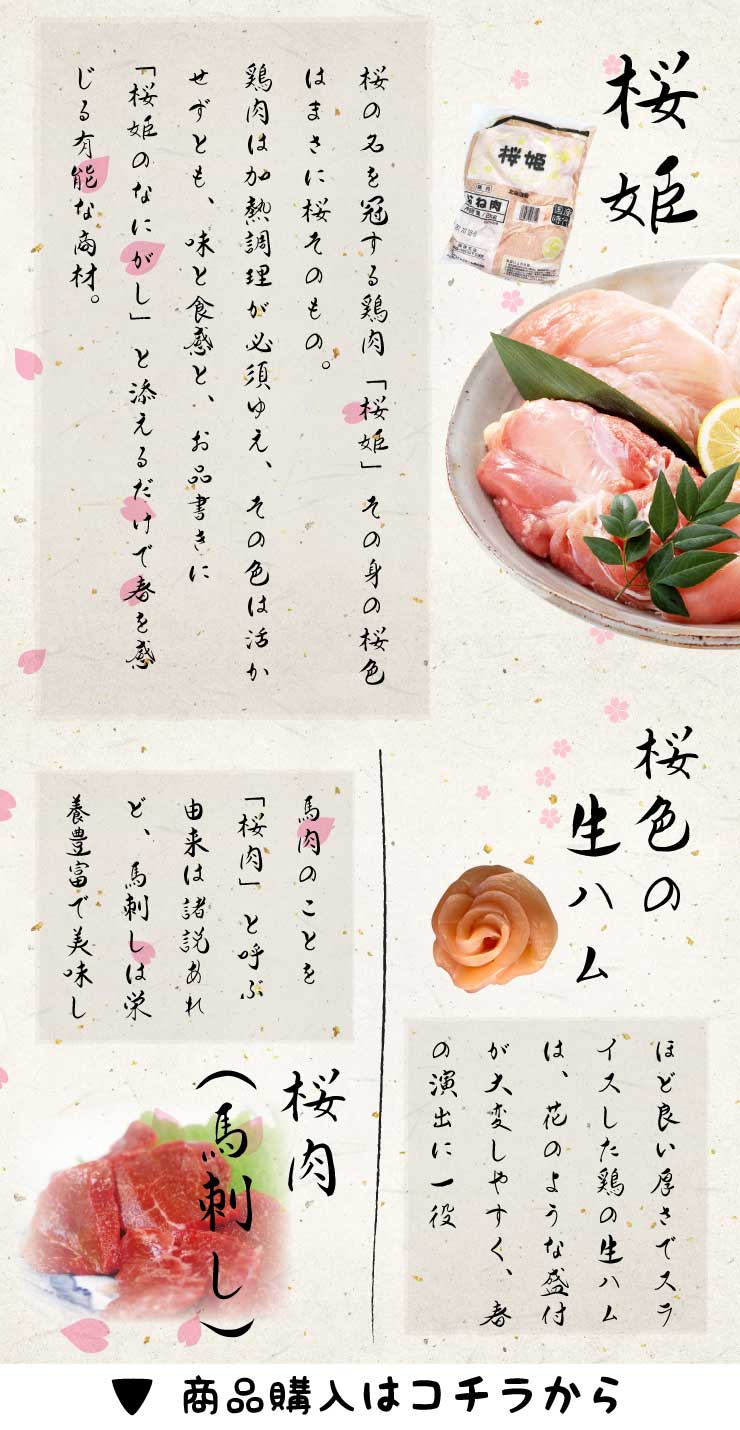 桜姫
桜姫
むね肉
国産
桜の名を冠する鶏肉「桜姫」その身の桜色
はまさに桜そのもの。
鶏肉は加熱調理が必須ゆえ、その色は活か
せずとも、味と食感と、お品書きに
「桜姫のなにがし」と添えるだけで春を感
じる有能な商材。
桜色の
生ハム
ほど良い厚さでスラ
イスした鶏の生ハム
は、花のような盛付
が大変しやすく、春
の演出に一役
馬肉のことを
「桜肉」と呼ぶ
由来は諸説あれ
ど、馬刺しは栄
養豊富で美味し
桜肉
(馬刺し)
▼商品購入はコチラから